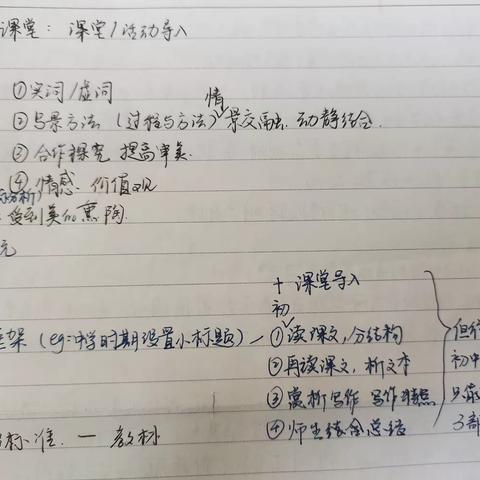 课堂：课堂/活动导入
①实词/虚词
②写景方法（过程与方法）情景交融、动静结合
③合作探究 提高审美
④情感、价值观
分析）
受到美的熏陶
元
+ 课堂导入
框架（eg:中学时期设置小标题）—①初读课文，分结构
②再读课文，析文本
③赏析写作 写作特点
④师生综合总结
初中
3部
标准 — 教材